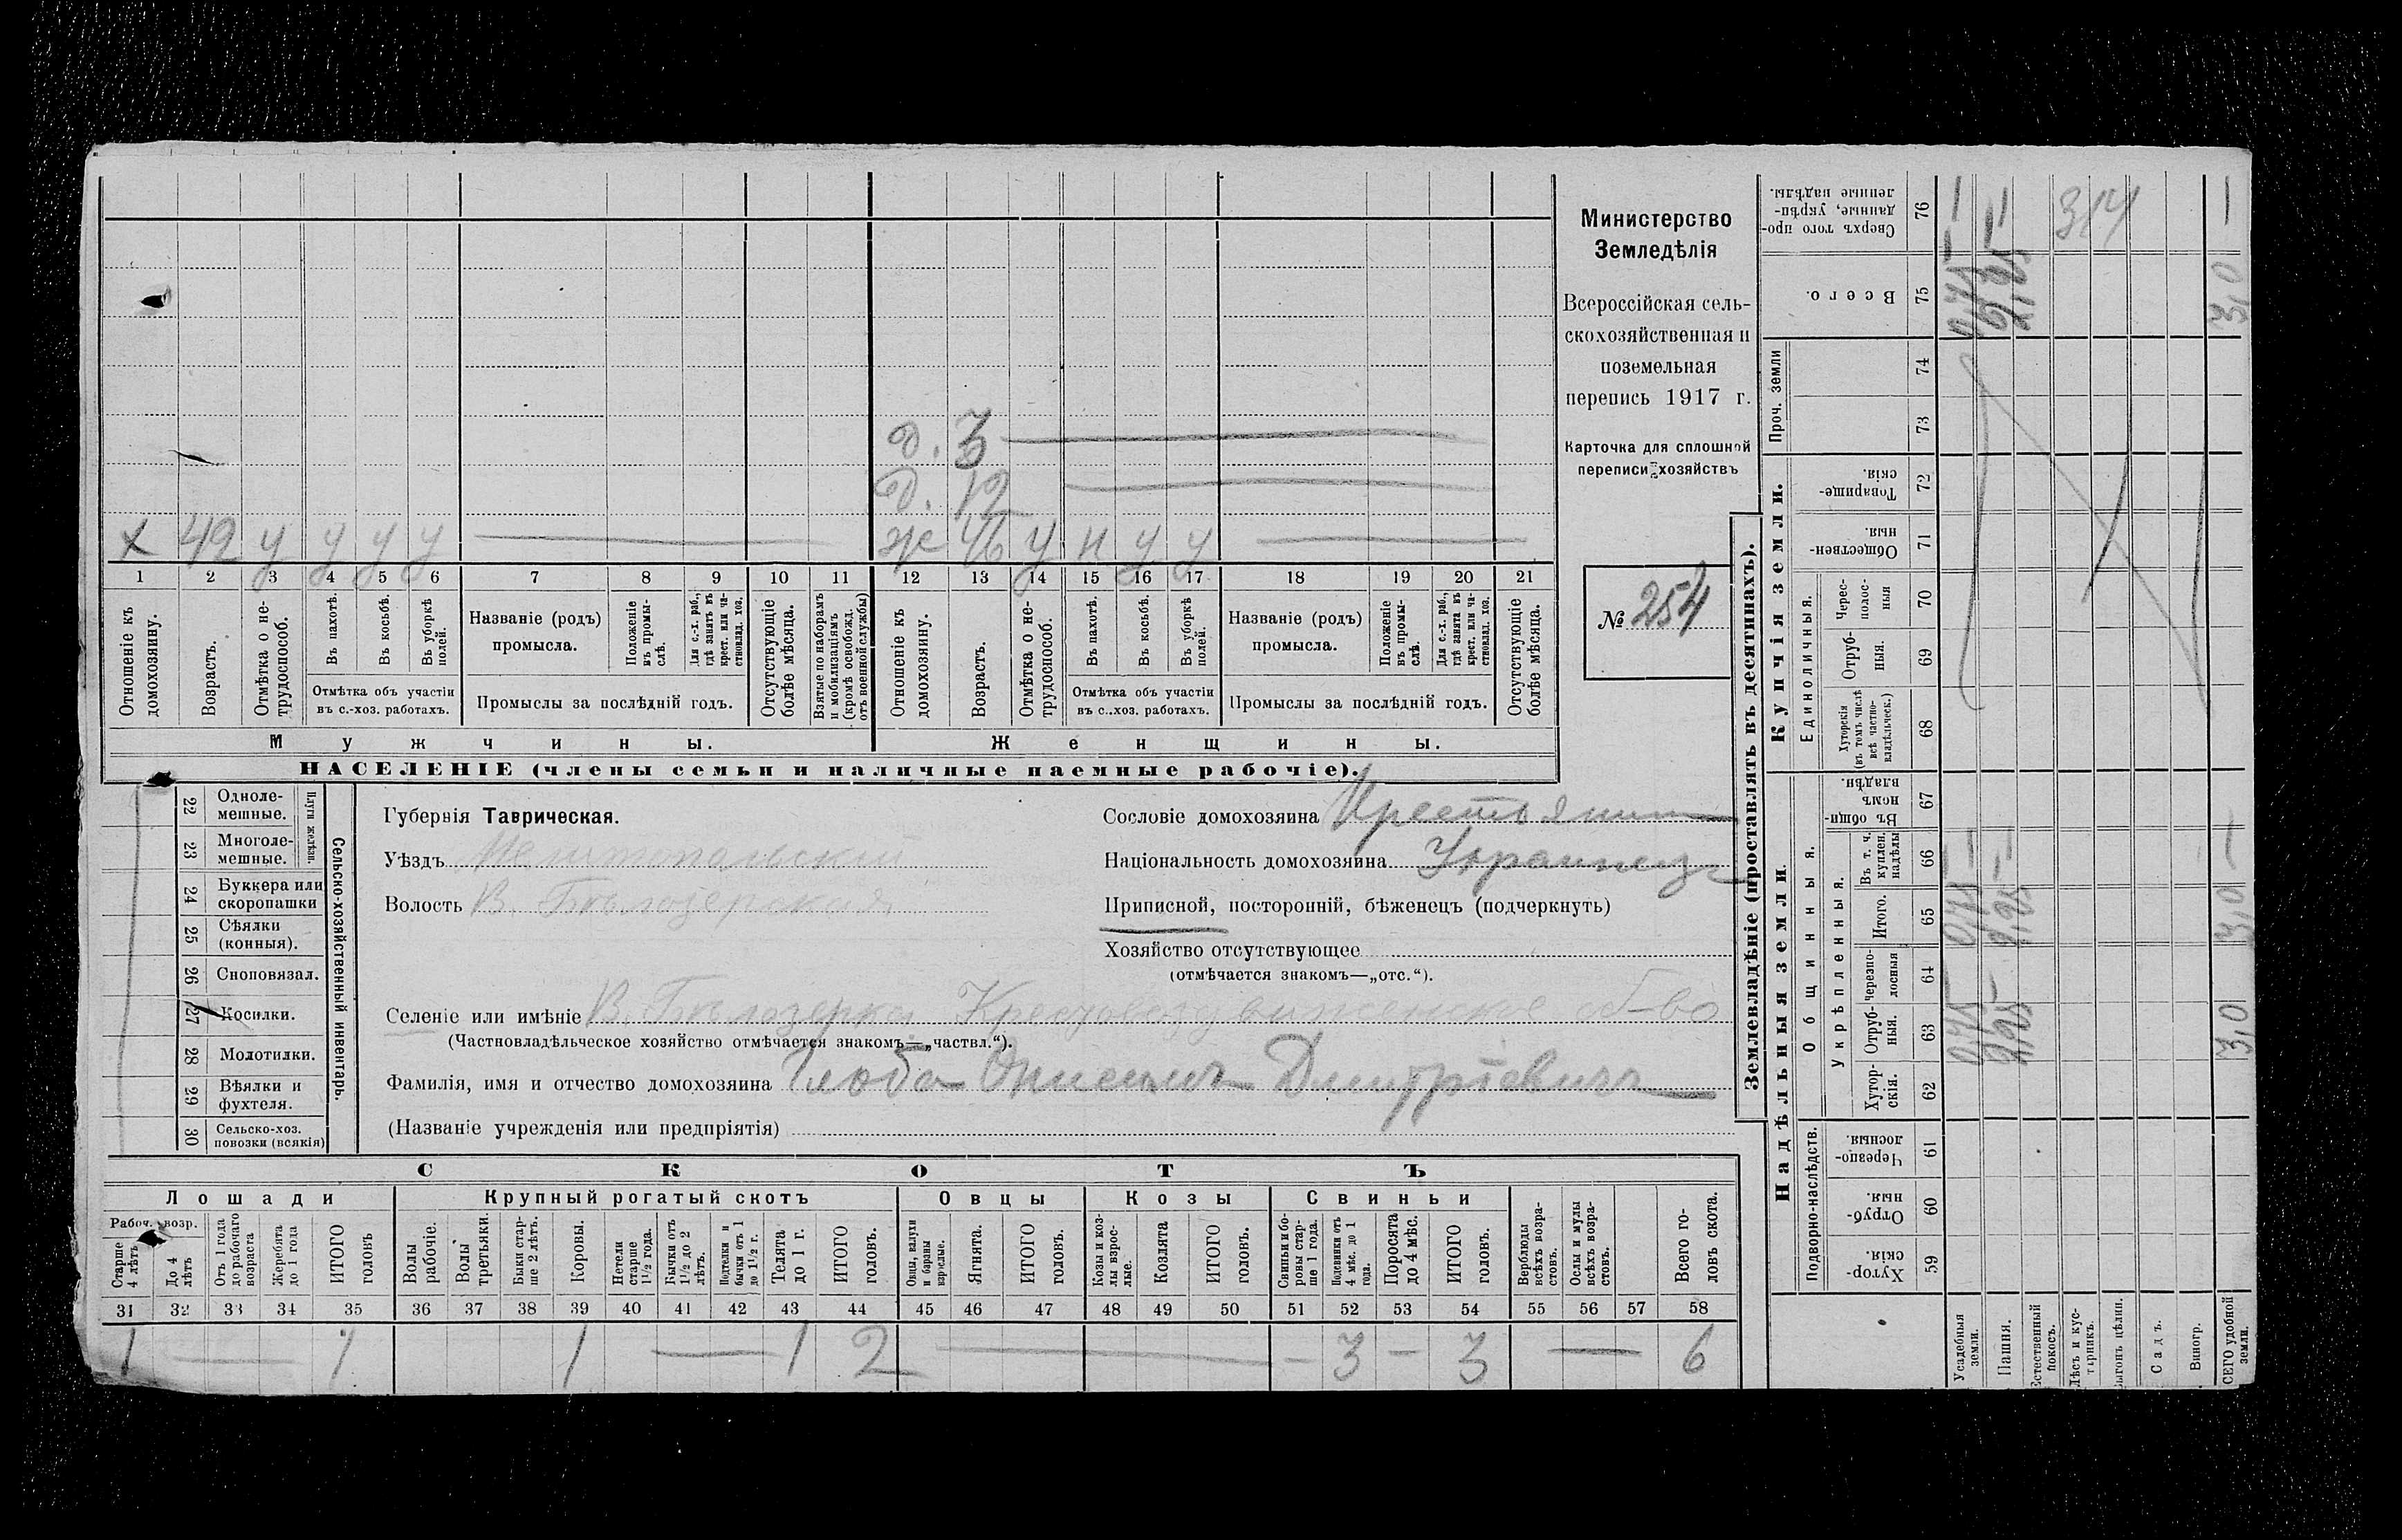 Министерство
Земледѣлія
Всероссійская сель-
скохозяйственная и
поземельная
перепись 1917 г.
Карточка для сплошной
переписи хозяйствъ
№ 254
д. 3
д. 12
х 42 у у у у
ж 46 у н у у
1 2 3 4 5 6 7 8 9 10 11 12 13 14 15 16 17 18 19 20 21
Отношеніе къ домохозяину.
Возрастъ.
Отмѣтка о не-трудоспособ.
Въ пахотѣ.
Въ косьбѣ.
Въ уборкѣ полей.
Отмѣтка объ участіи
въ с.-хоз. работахъ.
Названіе (родъ)
промысла.
Положеніе въ промы-слѣ.
Для с.-х. раб., гдѣ занятъ въ крест. или ча-стновлад. хоз.
Промыслы за послѣдній годъ.
Отсутствующіе болѣе мѣсяца.
Взятые по наборамъ и мобилизаціямъ (кромѣ освобожд. отъ военной службы)
Отношеніе къ домохозяину.
Возрастъ.
Отмѣтка о не-трудоспособ.
Въ пахотѣ.
Въ косьбѣ.
Въ уборкѣ полей.
Отмѣтка объ участіи
въ с..хоз. работахъ.
Названіе (родъ)
промысла.
Положеніе въ промы-слѣ.
Для с.-х. раб., гдѣ занята въ крест. или ча-стновлад. хоз.
Промыслы за послѣдній годъ.
Отсутствующіе болѣе мѣсяца.
Мужчины.
Женщины.
НАСЕЛЕНІЕ (члены семьи и наличные наемные рабочіе).
Сельско-хозяйственный инвентарь.
Плуги желѣзн.
22 Одноле-
мешные.
23 Многоле-
мешные.
24 Буккера или
скоропашки
25 Сѣялки
(конныя).
26 Сноповязал.
27 Косилки.
28 Молотилки.
29 Вѣялки и
фухтеля.
30 Сельско-хоз.
повозки (всякія)
Губернія Таврическая.
Уѣздъ Мелитопольскій
Волость В. Бѣлозерская
Сословіе домохозяина Крестьянин
Національность домохозяина Украинец
Приписной, посторонній, бѣженецъ (подчеркнуть)
Хозяйство отсутствующее
(отмѣчается знакомъ—„отс.“).
Селеніе или имѣніе В. Бѣлозерка Крестовоздвиженское об-во
(Частновладѣльческое хозяйство отмѣчается знакомъ—„частвл.“).
Фамилія, имя и отчество домохозяина Глоба Онисимъ Дмитріевичъ
(Названіе учрежденія или предпріятія)
СКОТЪ
Лошади
Крупный рогатый скотъ
Овцы
Козы
Свиньи
Рабоч. возр.
Старше 4 лѣтъ
До 4 лѣтъ
Отъ 1 года до рабочаго возраста
Жеребята до 1 года
ИТОГО головъ
Волы рабочіе.
Волы третьяки.
Быки стар-ше 2 лѣтъ.
Коровы.
Нетели старше 1 1/2 года.
Бычки отъ 1 1/2 до 2 лѣтъ.
Подтелки и бычки отъ 1 до 1 1/2 г.
Телята до 1 г.
ИТОГО головъ.
Овцы, валухи и бараны взрослые.
Ягнята.
ИТОГО головъ.
Козы и коз-лы взрос-лые.
Козлята
ИТОГО головъ.
Свиньи и бо-ровы стар-ше 1 года.
Подсвинки отъ 4 мѣс. до 1 года.
Поросята до 4 мѣс.
ИТОГО головъ.
Верблюды всѣхъ возра-стовъ.
Ослы и мулы всѣхъ возра-стовъ.
Всего го-ловъ скота.
31 32 33 34 35 36 37 38 39 40 41 42 43 44 45 46 47 48 49 50 51 52 53 54 55 56 57 58
1 — 1 1 — 1 2 — — 3 — 3 — 6
Землевладѣніе (проставлять въ десятинахъ).
Надѣльныя земли.
Купчія земли.
Проч. земли
Подворно-наслѣдств.
Общинныя.
Укрѣпленныя.
Единоличныя.
Хутор-скія. 59
Отруб-ныя. 60
Черезпо-лосныя. 61
Хутор-скія. 62
Отруб-ныя. 63
черезпо-лосныя 64
Итого. 65
Въ т. ч. куплен. надѣлы 66
Въ общин-номъ владѣн. 67
Хуторскія (въ томъ числѣ всѣ частно-владѣльческ.) 68
Отруб-ныя. 69
Черес-полос-ныя 70
Обществен-ныя. 71
Товарище-скія. 72
73
74
Всего. 75
Сверхъ того про-данные, укрѣп-ленные надѣлы. 76
Усадебныя земли. 0,75 0,75 — 0,75 —
Пашня. 2,25 2,25 —
Естественный покосъ.
Лѣсъ и кус-тарникъ.
Выгонъ цѣлин.
Садъ.
Виногр.
ВСЕГО удобной земли. 3,0 3,0 — 3,0 —
314